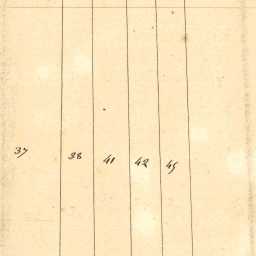 37 38 41 42 45